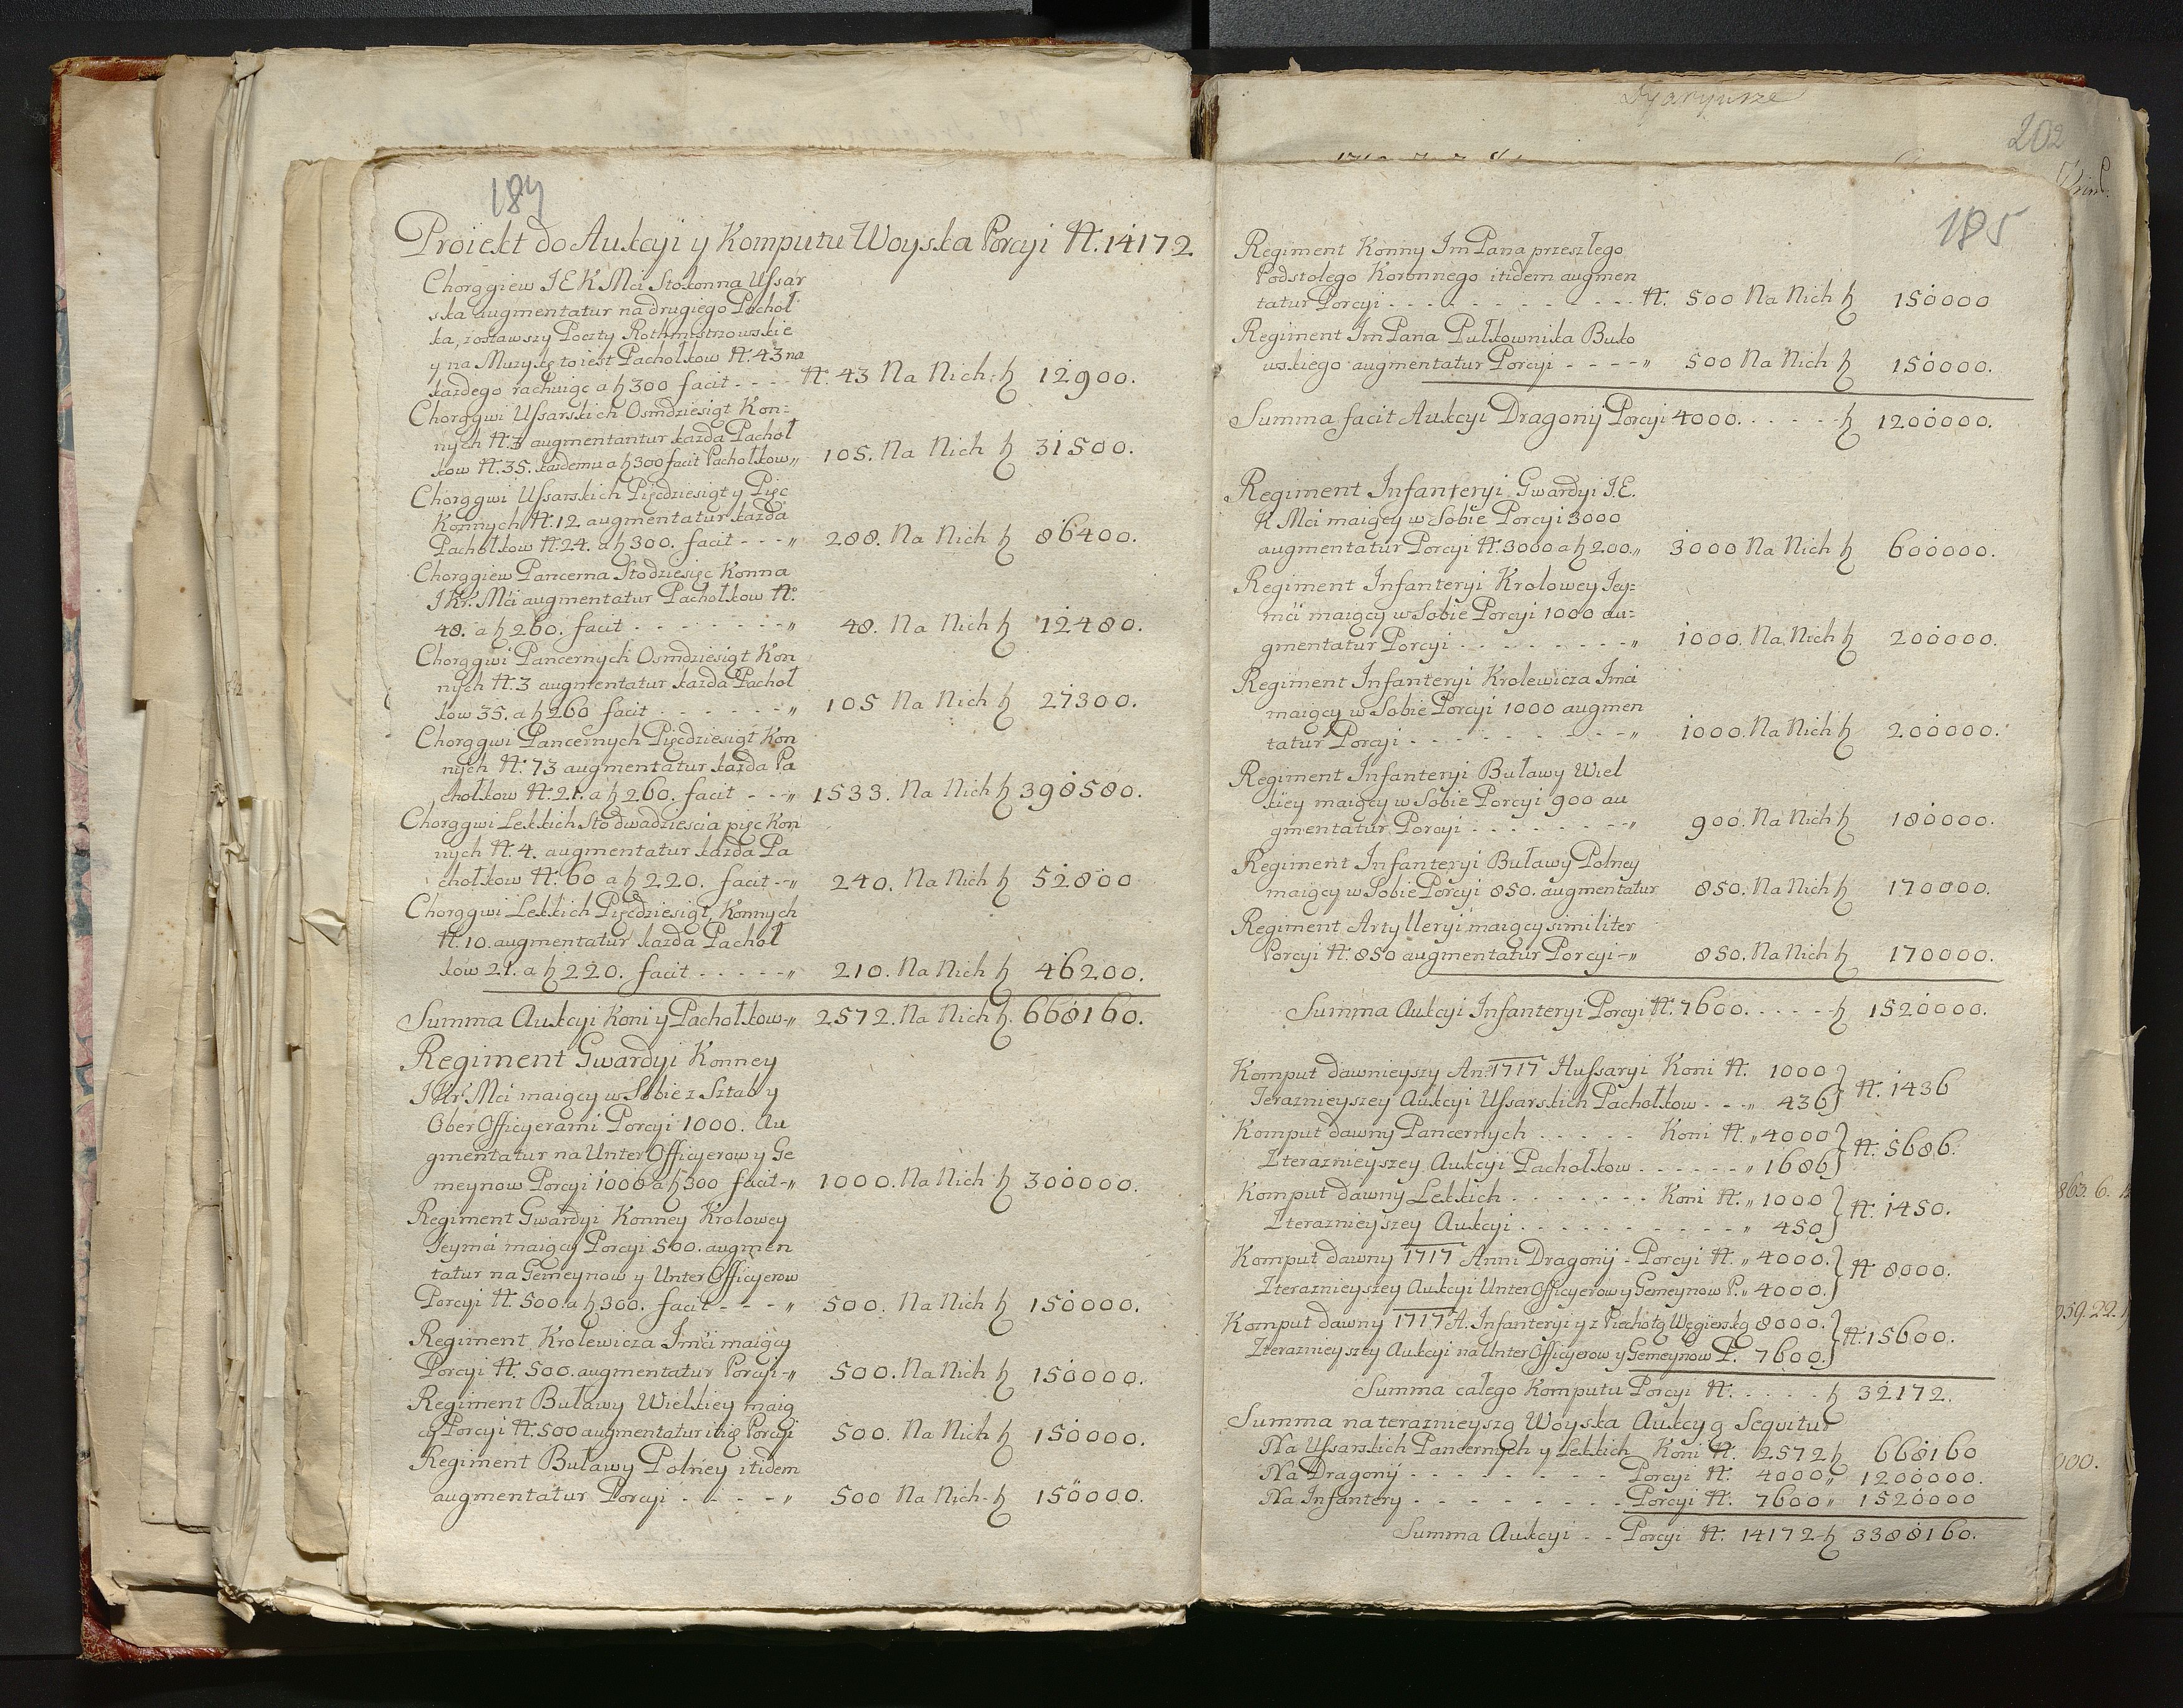 184
Proiekt do Aukcyi y Komputu Woyska Porcyi N. 14172
Chorągiew I E K Mci Stokonna Ussar
ska augmentatur na drugiego Pachoł
ka, zostawszy Poczty Rothmistrzowskie
y na Muzykę to iest Pachołkow N. 43 na
każdego rachuiąc a ƶ 300 facit - - - - N. 43 Na Nich - ƶ 12900.
Chorągwi Ussarskich Osmdziesiąt Kon=
nych N. 3 augmentantur każda Pachoł
kow N. 35. każdemu a ƶ 300 facit Pachołkow „ 105. Na Nich ƶ 31500.
Chorągwi Ussarskich Pięcdziesiąt y Pięc
Konnych N. 12 augmentatur każda
Pachołkow N. 24. a ƶ 300. facit - - - „ 288. Na Nich ƶ 86400.
Chorągiew Pancerna Stodziesięc Konna
I Kr. Mci augmentatur Pachołkow N.
48. a ƶ 260. facit - - - - - - - „ 48. Na Nich ƶ 12480.
Chorągwi Pancernych Osmdziesiąt Kon
nych N. 3 augmentatur każda Pachoł
kow 35. a ƶ 260 facit - - - - - - „ 105 Na Nich ƶ 27300.
Chorągwi Pancernych Pięcdziesiąt Kon
nych N. 73 augmentatur każda Pa
chołkow N. 21. a ƶ 260. facit - - - „ 1533. Na Nich ƶ 398580.
Chorągwi Lekkich Sto dwadziescia pięc Kon
nych N. 4. augmentatur każda Pa
chołkow N. 60 a ƶ 220. facit - - „ 240. Na Nich ƶ 52800
Chorągwi Lekkich Pięcdziesiąt Konnych
N. 10. augmentatur każda Pachoł
kow 21. a ƶ 220. facit - - - - - „ 210. Na Nich ƶ 46200.
Summa Aukcyi Koni y Pachołkow - „ 2572. Na Nich ƶ. 668160.
Regiment Gwardyi Konney
I Kr Mci maiący w Sobie z Sztab y
Ober Officyerami Porcyi 1000. Au
gmentatur na Unter Officyerow y Ge
meynow Porcyi 1000 a ƶ 300 facit - „ 1000. Na Nich ƶ 300000.
Regiment Gwardyi Konney Krolowey
Ieymci maiący Porcyi 500. augmen
tatur na Gemeynow y Unter Officyerow
Porcyi N. 500. a ƶ 300. facit - - - „ 500. Na Nich ƶ 150000.
Regiment Krolewicza Imci maiący
Porcyi N. 500. augmentatur Porcyi - „ 500. Na Nich ƶ 150000.
Regiment Buławy Wielkiey maią
cy Porcyi N. 500 augmentatur Porcyi 500. Na Nich ƶ 150000.
Regiment Buławy Polney itidem
augmentatur Porcyi - - - - „ 500 Na Nich - ƶ 150000.
Dyaryusze
202
185
Regiment Konny Im Pana przeszłego
Podstolego Koronnego itidem augmen
tatur Porcyi - - - - - - - - - - - N. 500 Na Nich ƶ 150000
Regiment Im Pana Pułkownika Buko
wskiego augmentatur Porcyi - - - - „ 500 Na Nich ƶ 150000.
Summa facit Aukcyi Dragonij Porcyi 4000. - - - - - ƶ 1200000.
Regiment Infanteryi Gwardyi I. E.
K Mci maiący w Sobie Porcyi 3000
augmentatur Porcyi N. 3000 a ƶ 200. „ 3000 Na Nich ƶ 600000.
Regiment Infanteryi Krolowey Iey=
mci maiący w Sobie Porcyi 1000 au=
gmentatur Porcyi - - - - - - - - „ 1000. Na Nich ƶ 200000.
Regiment Infanteryi Krolewicza Imci
maiący w Sobie Porcyi 1000 augmen
tatur Porcyi - - - - - - - - - - „ 1000. Na Nich ƶ 200000.
Regiment Infanteryi Buławy Wiel
kiey maiący w Sobie Porcyi 900 au
gmentatur Porcyi - - - - - - - - „ 900. Na Nich ƶ 180000.
Regiment Infanteryi Buławy Polney
maiący w Sobie Porcyi 850. augmentatur 850. Na Nich ƶ 170000.
Regiment Artylleryi maiący similiter
Porcyi N. 850 augmentatur Porcyi - „ 850. Na Nich ƶ 170000.
Summa Aukcyi Infanteryi Porcyi N. 7600. - - - - - ƶ 1520000.
Komput dawnieyszy An: 1717 Hussaryi Koni N. 1000 } N. 1436
Teraznieyszey Aukcyi Ussarskich Pachołkow - - - „ 436
Komput dawny Pancernych - - - - - Koni N. „ 4000 } N. 5686.
I teraznieyszey Aukcyi Pachołkow - - - - - - „ 1686
Komput dawny Lekkich - - - - - - - Koni N. „ 1000 } N. 1450.
I teraznieyszey Aukcyi - - - - - - - - - - - „ 450
Komput dawny 1717 Anni Dragonij - Porcyi N. „ 4000. } N 8000.
I teraznieyszey Aukcyi Unter Officyerow y Gemeynow P. „ 4000.
Komput dawny 1717 A. Infanteryi y z Piechotą Węgierską 8000. } N. 15600.
I teraznieyszey Aukcyi na Unter Officyerow y Gemeynow P. 7600.
Summa całego Komputu Porcyi N. - - - - ƶ 32172.
Summa na teraznieyszą Woyska Aukcyą Sequitur
Na Ussarskich Pancernych y Lekkich Koni N. 2572 ƶ 668160
Na Dragonij - - - - - - - - - Porcyi N. 4000 „ 1200000.
Na Infantery - - - - - - - - - Porcyi N. 7600 „ 1520000
Summa Aukcyi - - Porcyi N. 14172 - ƶ 3388160.